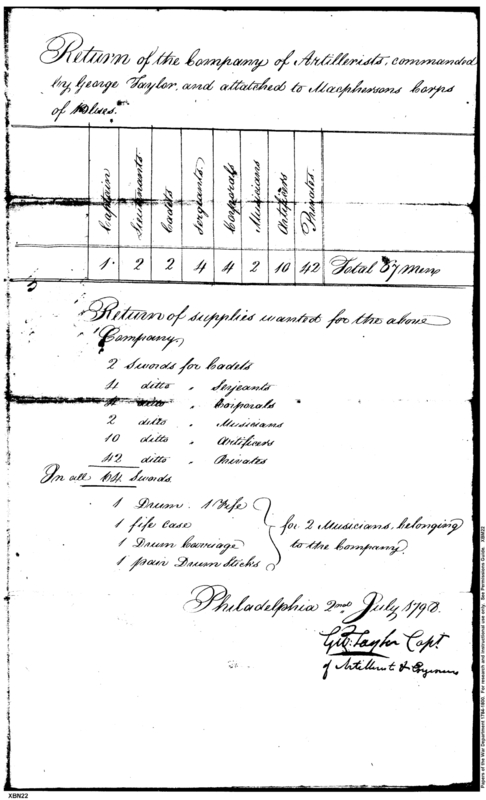 Return of the Company of Artillerists, commanded
by George Taylor, and attatched to Macphersons Corps
of Blues.
Captain Lieutenants Cadets Sergiants Corporals Musicians Artifiers Privates
1 2 2 4 4 2 10 42 Total 67 men
Return of supplies wanted for the above
Company
2 Swords for Cadets
4 ditto " Serjeants
4 ditto " Corporals
2 ditto " Musicians
10 ditto " Artificers
42 ditto " Privates
In all 64 Swords
1 Drum. 1 Fife
1 fife case
1 Drum Carriage
1 pair Drum Sticks
for 2 Musicians, belonging
to the Company.
Philadelphia 2nd July 1798.
Geo: Taylor Capt.
of Artillerist & Engineers
XBN22
Papers of the War Department 1784-1800. For research and instructional use only. See Permissions Guide. XBN22